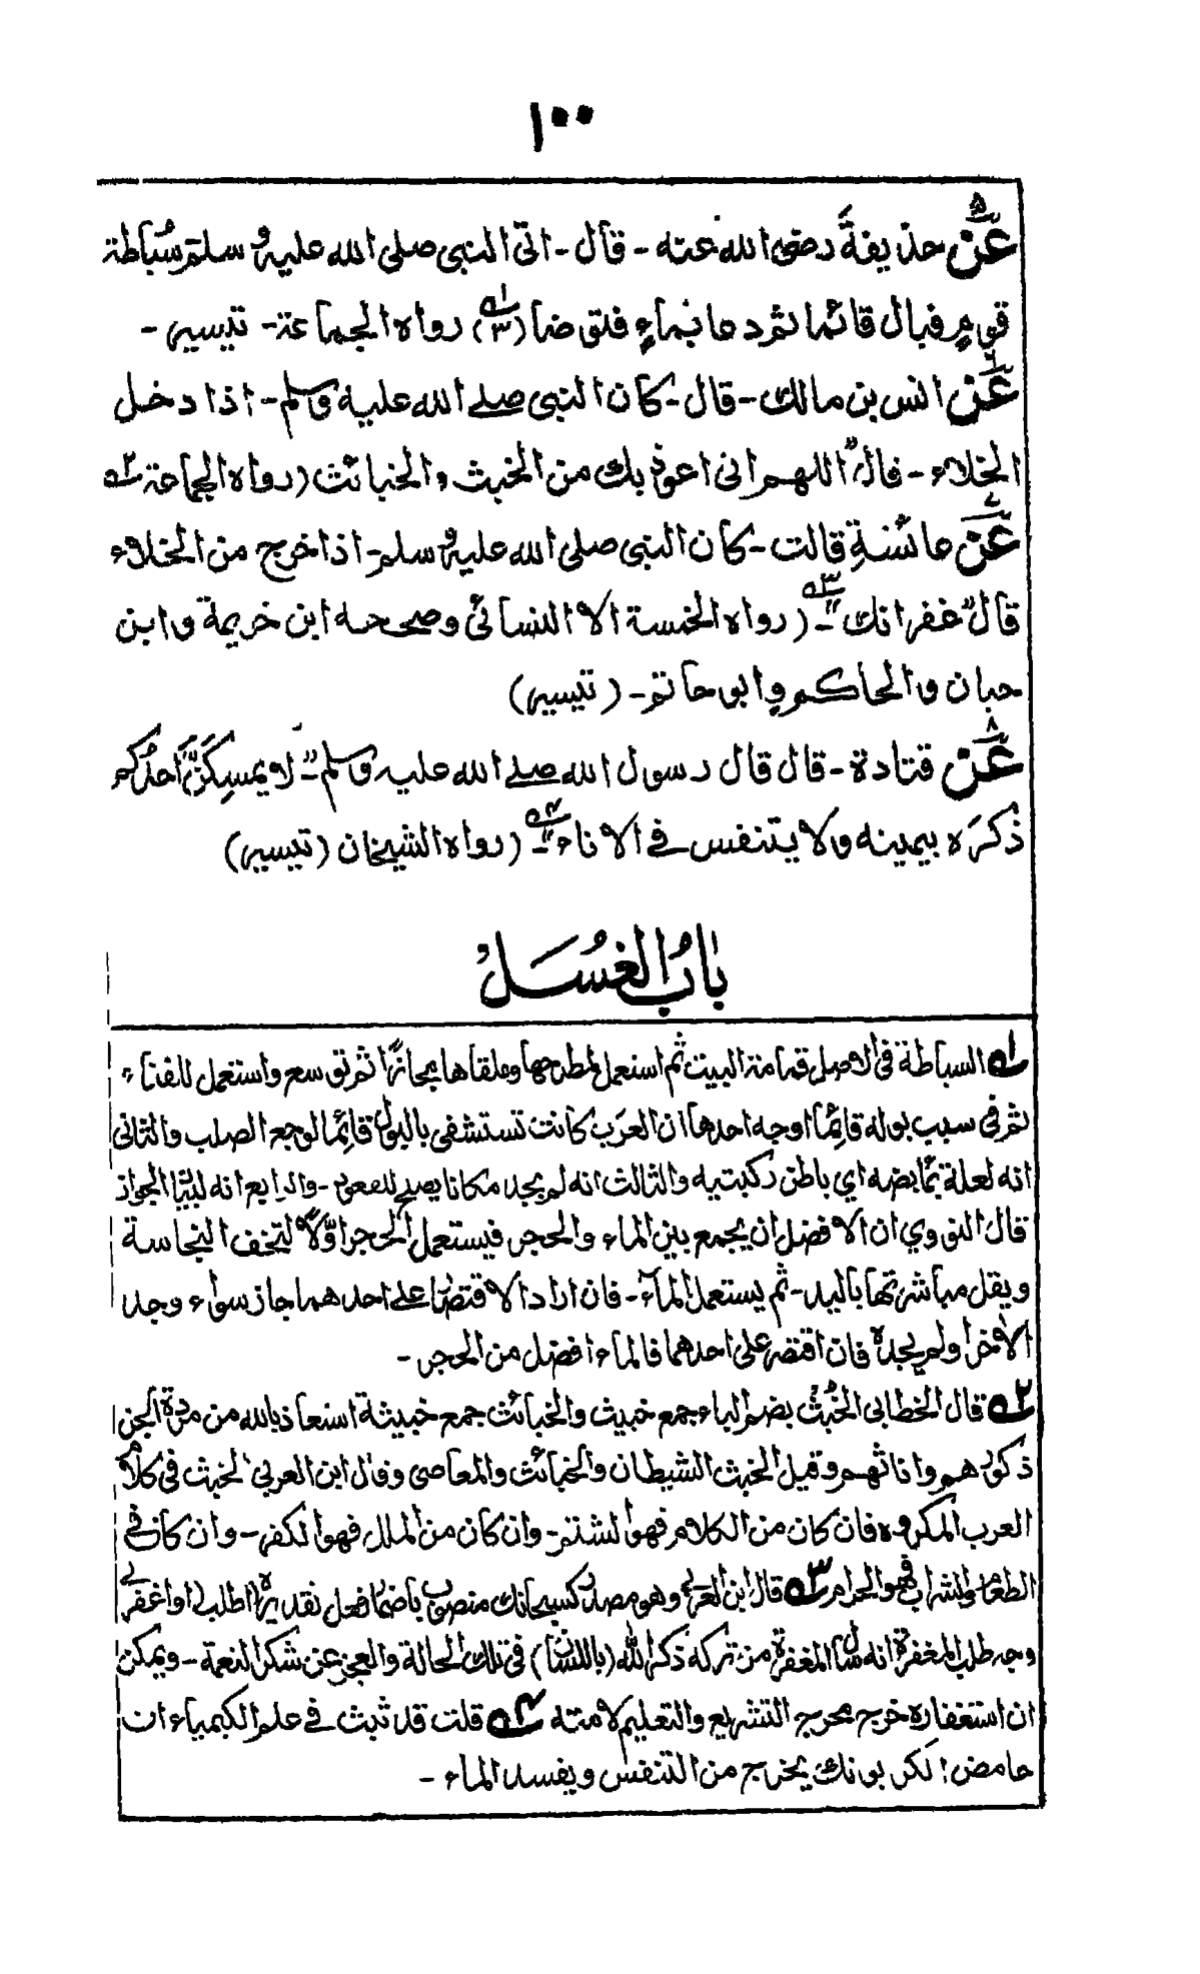 ١٠٠
٥ عَنْ حذيفةَ رضى الله عنه - قال - اتى النبى صلى الله عليه و سلم سُباطة
قومٍ فبال قائما ثم دعا بماءٍ فتوضا (٣) ١ رواه الجماعة - تيسير -
٦ عَنْ انس بن مالك - قال - كان النبى صلے الله عليه وسلم - اذا دخل
الخلاء - قال "اللهم انى اعوذ بك من الخبث والخبائث (رواه الجماعة ٢
٧ عَنْ عائشةِ قالت - كان النبى صلى الله عليه و سلم - اذا خرج من الخلاء
قال "غفرانك" ٣ - (رواه الخمسة الا النسائى وصححه ابن خزيمة وابن
حبان والحاكم وابو حاتم - (تيسير)
٨ عَنْ قتادة - قال قال رسول الله صلے الله عليه وسلم - "لا يمسِكَنَّ احدُكم
ذَكرَه بيمينه ولا يتنفس فے الاناء" ٤ - (رواه الشيخان (تيسير)
بابُ الغُسَلْ
١ السباطة فى الاصل قمامة البيت ثم استعمل لمطرحها وملقاها مجازًا ثم توسع واستعمل للفناء
ثم فى سبب بوله قائِمًا اوجه احدها ان العرَب كانت تستشفى بالبول قائِمًا لوجع الصلب والثانى
انه لعلة بمابضه اي باطن ركبتيه والثالث انه لم يجد مكانا يصلح للقعود - والرابع انه لبيان الجواز
قال النووي ان الافضل ان يجمع بين الماء والحجر فيستعمل الحجر اوّلًا لتخف النجاسة
ويقل مباشرتها باليد - ثم يستعمل المآء - فان اراد الاقتصار على احدهما جاز سواء وجد
الاٰخر اولم يجده فان اقتصر على احدهما فالماء افضل من الحجر -
٢ قال الخطابى الخُبُث بضم الباء جمع خبيث والخبائث جمع خبيثة استعاذ بالله من مردة الجن
ذكورهم واناثهم وقيل الخبث الشيطان والخبائث والمعاصى وقال ابن العربي الخبث فى كلام
العرب المكروه فان كان من الكلام فهو الشتم - وان كان من الملل فهو الكفر - وان كان فے
الطعام والشراب فهو الحرام ٣ قال ابن العربے وهو مصدر كسبحانك منصوب باضمار فعل تقديره اطلب او اغفرلے
وجه طلب المغفرة انه سأل المغفرة من تركه ذكر الله (باللسان) فى تلك الحالة والعجز عن شكر النعمة - ويمكن
ان استغفاره خرج مخرج التشريع والتعليم لامته ٤ قلت قد ثبت فے علم الكيمياء ان
حامض الكربونك يخرج من التنفس ويفسد الماء -